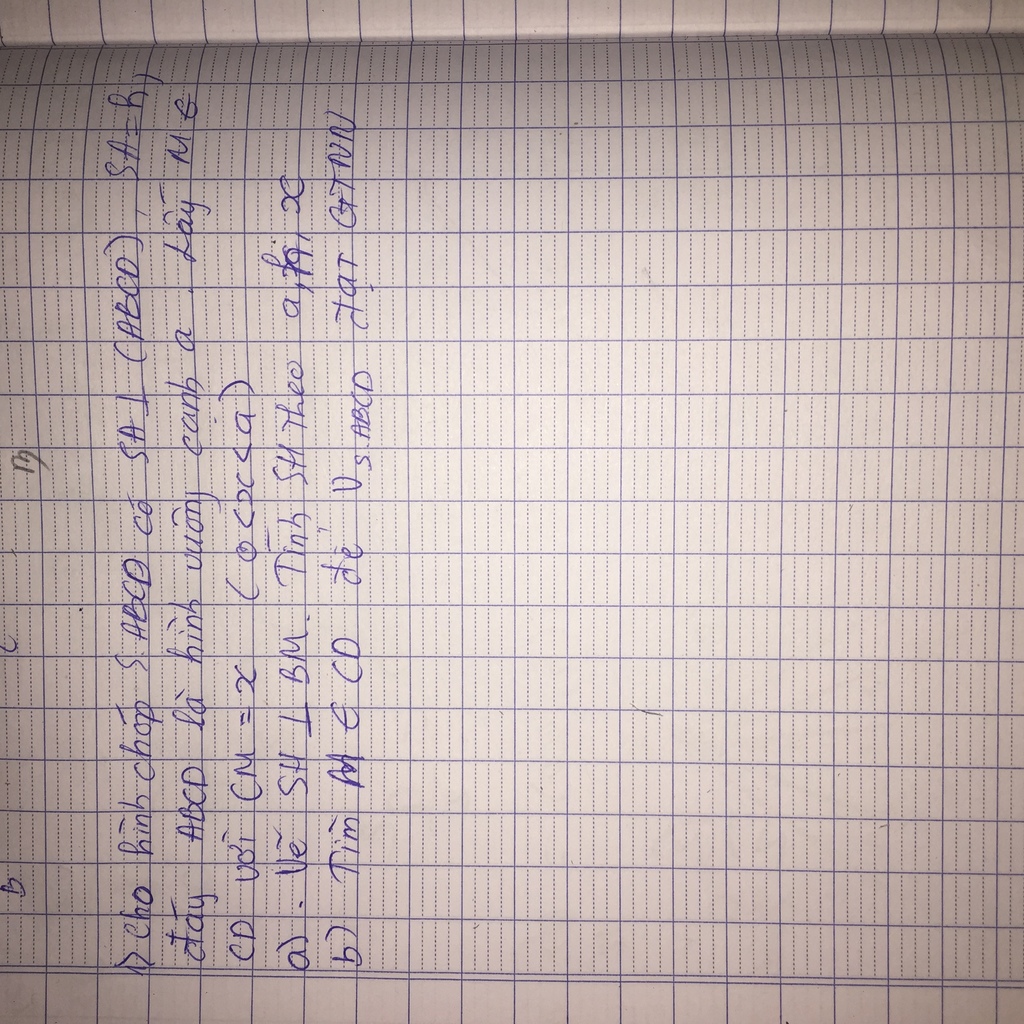 1) Cho hình chóp S.ABCD có SA ⊥ (ABCD), SA = h,
đáy ABCD là hình vuông cạnh a. Lấy M ∈
CD với CM = x (0<x<a)
a). Vẽ SH ⊥ BM. Tính SH theo a, h, x
b) Tìm M ∈ CD để V S.ABCD đạt GTNN